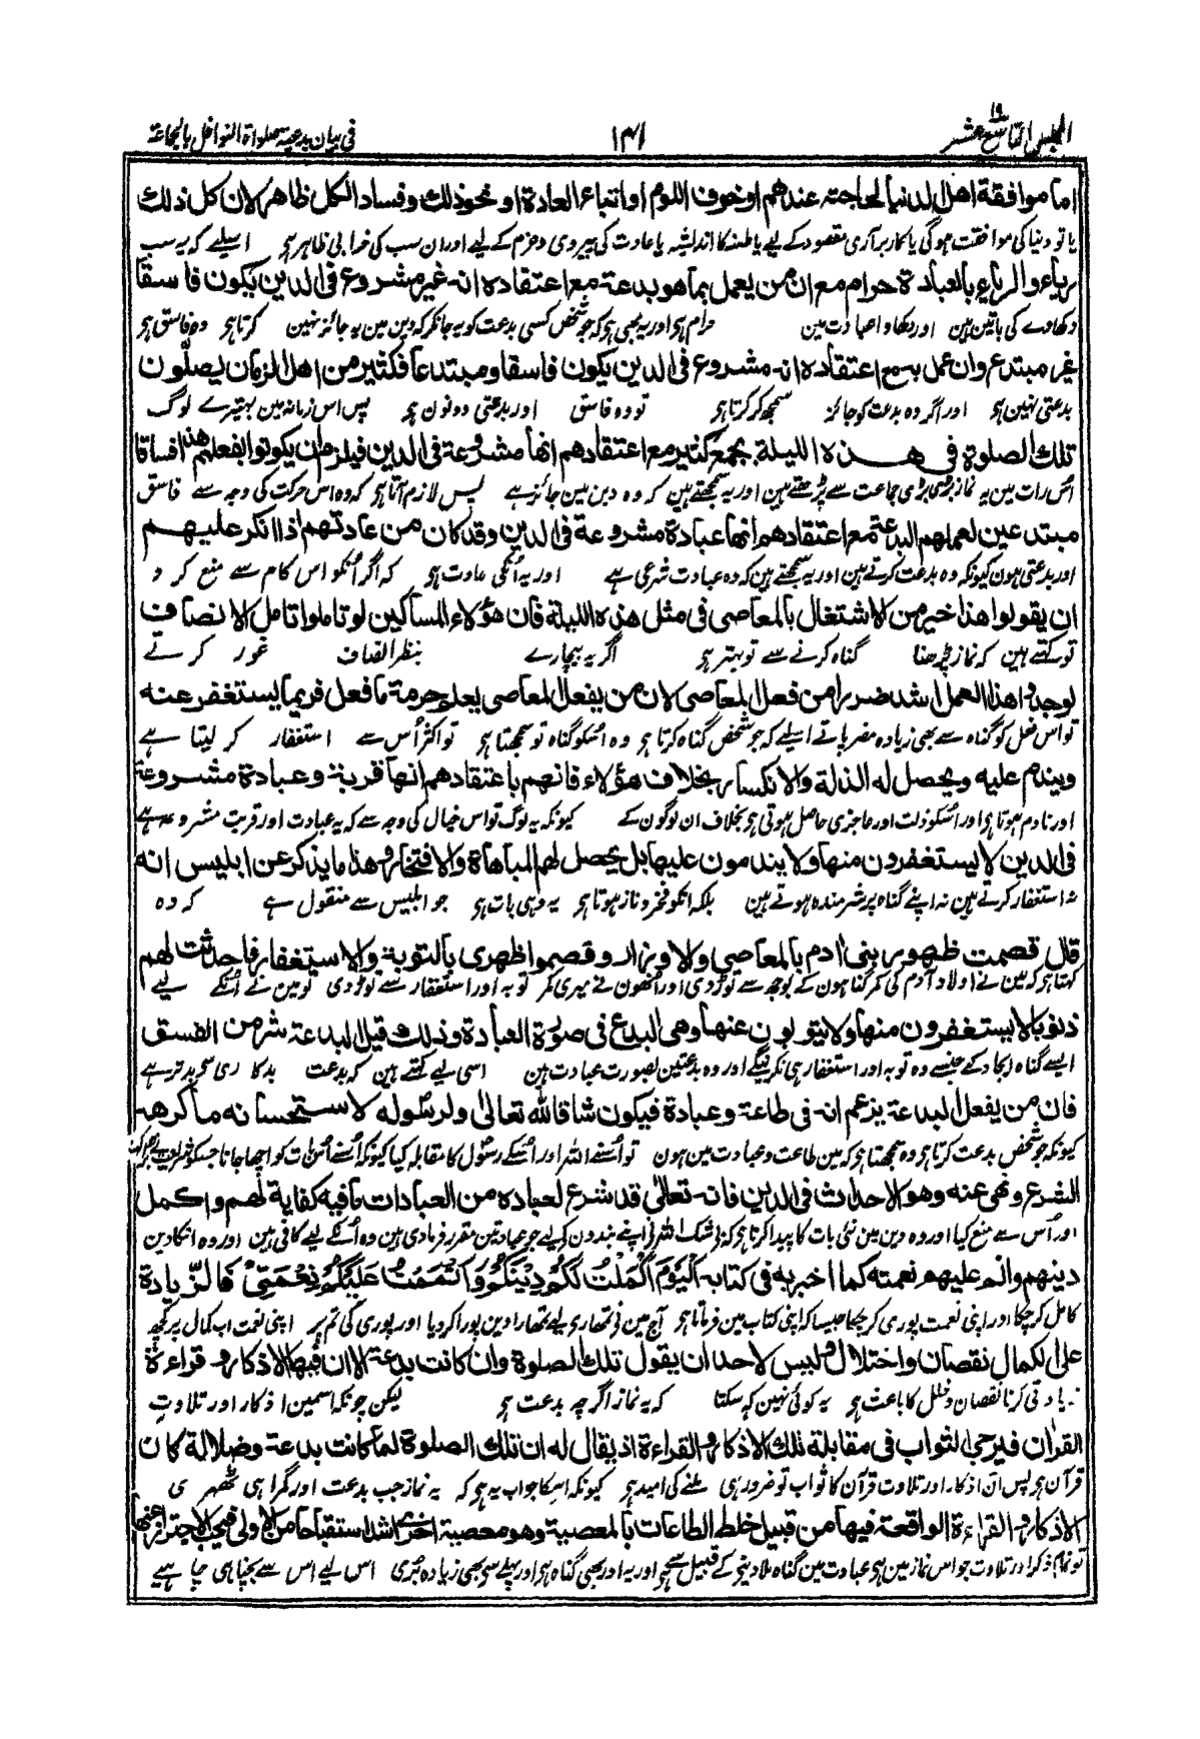 المجلس التاسع عشر ١٩
١٣١
فی بیان بدعیة صلواة النوافل بالجماعة
اما موافقة اهل الدنیا لحاجته عندهم او خوف اللوم او اتباع العادة او نحو ذلك وفساد الكل ظاهر لان كل ذلك
یا تو دنیا کی موافقت ہوگی یا کار برآری مقصود کے لیے یا طعنہ کا اندیشہ یا عادت کی پیروی وغیرہ کے لیے اور ان سب کی خرابی ظاہر ہے اسلیے کہ یہ سب
ریاء والریاء بالعبادة حرام مع ان من یعمل بما هو بدعة مع اعتقاده انه غیر مشروع فی الدین یكون فاسقا
دکھاوے کی باتین ہین اور دکھاوا عبادت مین حرام ہے اور یہ بھی ہے کہ جو شخص کسی بدعت کو یہ جانکر کہ دین مین یہ جائز نہین کرتا ہے وہ فاسق ہے
غیر مبتدع وان عمل به مع اعتقاده انه مشروع فی الدین یكون فاسقا ومبتدعا فكثیر من اهل الزمان یصلّون
بدعتی نہین ہے اور اگر وہ بدعت کو جائز سمجھ کر کرتا ہے تو وہ فاسق اور بدعتی دونون ہے پس اس زمانہ مین بہتیرے لوگ
تلك الصلوة فی هذه اللیلة بجمع كثیر مع اعتقادهم انها مشروعة فی الدین فیلزم ان یكونوا بفعلهم هذا فساقا
اس رات مین یہ نماز بڑی بڑی جماعت سے پڑھتے ہین اور یہ سمجھتے ہین کہ وہ دین مین جائز ہے پس لازم آتا ہے کہ وہ اس حرکت کی وجہ سے فاسق
مبتدعین لعملهم البدعة مع اعتقادهم انها عبادة مشروعة فی الدین وقد كان من عادتهم اذا انكر علیهم
اور بدعتی ہون کیونکہ وہ بدعت کرتے ہین اور یہ سمجھتے ہین کہ وہ عبادت شرعی ہے اور یہ انکی عادت ہے کہ اگر انکو اس کام سے منع کر و
ان یقولوا هذا خیر من الاشتغال بالمعاصی فی مثل هذه اللیلة فان هؤلاء المساكین لو تاملوا تامل الانصاف
تو کہتے ہین کہ نماز پڑھنا گناہ کرنے سے تو بہتر ہے اگر یہ بیچارے بنظر انصاف غور کرتے
لوجدوا هذا العمل اشد ضررا من فعل المعاصی لان من یفعل المعاصی یعلم حرمة ما فعل فربما یستغفر عنه
تو اس فعل کو گناہ سے بھی زیادہ مضر پاتے اسلیے کہ جو شخص گناہ کرتا ہے وہ اسکو گناہ تو سمجھتا ہے تو اکثر اُس سے استغفار کر لیتا ہے
ویندم علیه ویحصل له الذلة والانكسار بخلاف هؤلاء فانهم باعتقادهم انها قربة وعبادة مشروعة
اور نادم ہوتا ہے اور اسکو ذلت اور عاجزی حاصل ہوتی ہے بخلاف ان لوگون کے کیونکہ یہ لوگ تو اس خیال کی وجہ سے کہ یہ عبادت اور قربت مشروعہ ہے
فی الدین لا یستغفرون منها ولا یندمون علیها بل یحصل لهم المباهاة والافتخار وهذا ما یذكر عن ابلیس انه
نہ استغفار کرتے ہین نہ اپنے گناہ پر شرمندہ ہوتے ہین بلکہ انکو فخر و ناز ہوتا ہے یہ وہی بات ہے جو ابلیس سے منقول ہے کہ وہ
قال قصمت ظهور بنی ادم بالمعاصی والاوزار وقصموا ظهری بالتوبة والاستغفار فاحدثت لهم
کہتا ہے کہ مین نے اولاد آدم کی کمر گناہون کے بوجھ سے توڑ دی اور انھون نے میری کمر توبہ اور استغفار سے توڑ دی تو مین نے اُنکے لیے
ذنوبا لا یستغفرون منها ولا یتوبون عنها وهی البدع فی صورة العبادة ولذلك قیل البدعة شر من الفسق
ایسے گناہ ایجاد کے جنسے وہ توبہ اور استغفار ہی نکرینگے اور وہ بدعتین بصورت عبادت ہین اسی لیے کہتے ہین کہ بدعت بدکاری سے بدتر ہے
فان من یفعل البدعة یزعم انه فی طاعة وعبادة فیكون شاقا لله تعالی ولرسوله لاستحسانه ما كرهه
کیونکہ جو شخص بدعت کرتا ہے وہ سمجھتا ہے کہ مین طاعت و عبادت مین ہون تو اُسنے اللہ اور اُسکے رسول کا مقابلہ کیا کیونکہ اُسنے اُس بات کو اچھا جانا جسکو شریعت نے
الشرع ونهی عنه وهو الاحداث فی الدین فانه تعالی قد شرع لعباده من العبادات ما فیه كفایة لهم واكمل
اور اُس سے منع کیا اور وہ دین مین نئی بات کا پیدا کرنا ہے کہ بے شک اللہ نے اپنے بندون کے لیے جو عبادتین مقرر فرما دی ہین وہ اُنکے لیے کافی ہین اور وہ انکا دین
دینهم واتم علیهم نعمته كما اخبر به فی كتابه اَلْیَوْمَ اَكْمَلْتُ لَكُمْ دِیْنَكُمْ وَاَتْمَمْتُ عَلَیْكُمْ نِعْمَتِیْ فالزیادة
کامل کر چکا اور اپنی نعمت پوری کر چکا جیسا کہ اپنی کتاب مین فرماتا ہے آج مین نے تمھارے لیے تمھارا دین پورا کر دیا اور پوری کی تم پر اپنی نعمت اب کمال پر کچھ
علی الكمال نقصان واختلال ولیس لاحد ان یقول تلك الصلوة وان كانت بدعة الا ان فیها الاذكار وقراءة
زیادتی کرنا نقصان و خلل کا باعث ہے یہ کوئی نہین کہہ سکتا کہ یہ نماز اگرچہ بدعت ہے لیکن چونکہ اسمین اذکار اور تلاوت
القران فیرجی الثواب فی مقابلة تلك الاذكار والقراءة اذ یقال له ان تلك الصلوة لما كانت بدعة وضلالة كان
قرآن ہے پس ان اذکار اور تلاوت قرآن کا ثواب تو ضرور ہی ملنے کی امید ہے کیونکہ اسکا جواب یہ ہے کہ یہ نماز جب بدعت اور گمراہی ٹھہری
الاذكار والقراءة الواقعة فیها من قبیل خلط الطاعات بالمعصیة وهو معصیة اخری اشد استقباحا من الاولی فیجب الاحتراز عنها
تو تمام ذکر اور تلاوت جو اس نماز مین ہے عبادت مین گناہ ملا دینے کے قبیل سے ہے اور یہ اور بھی گناہ ہے اور پہلے سے بھی زیادہ بُری اس لیے اس سے بچنا ہی چاہیے